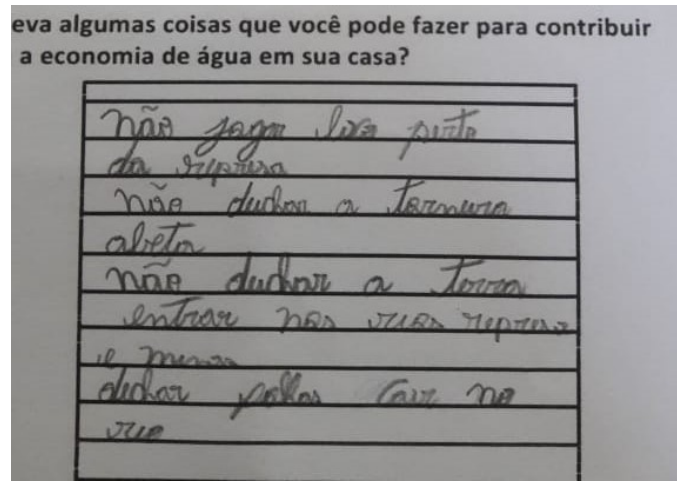 eva algumas coisas que você pode fazer para contribuir
a economia de água em sua casa?
não jogar lixo perto
da represa
não duchar a terneura
abeta
não duchar a terra
entrar nos rios represa
e
duchar cair no
rio